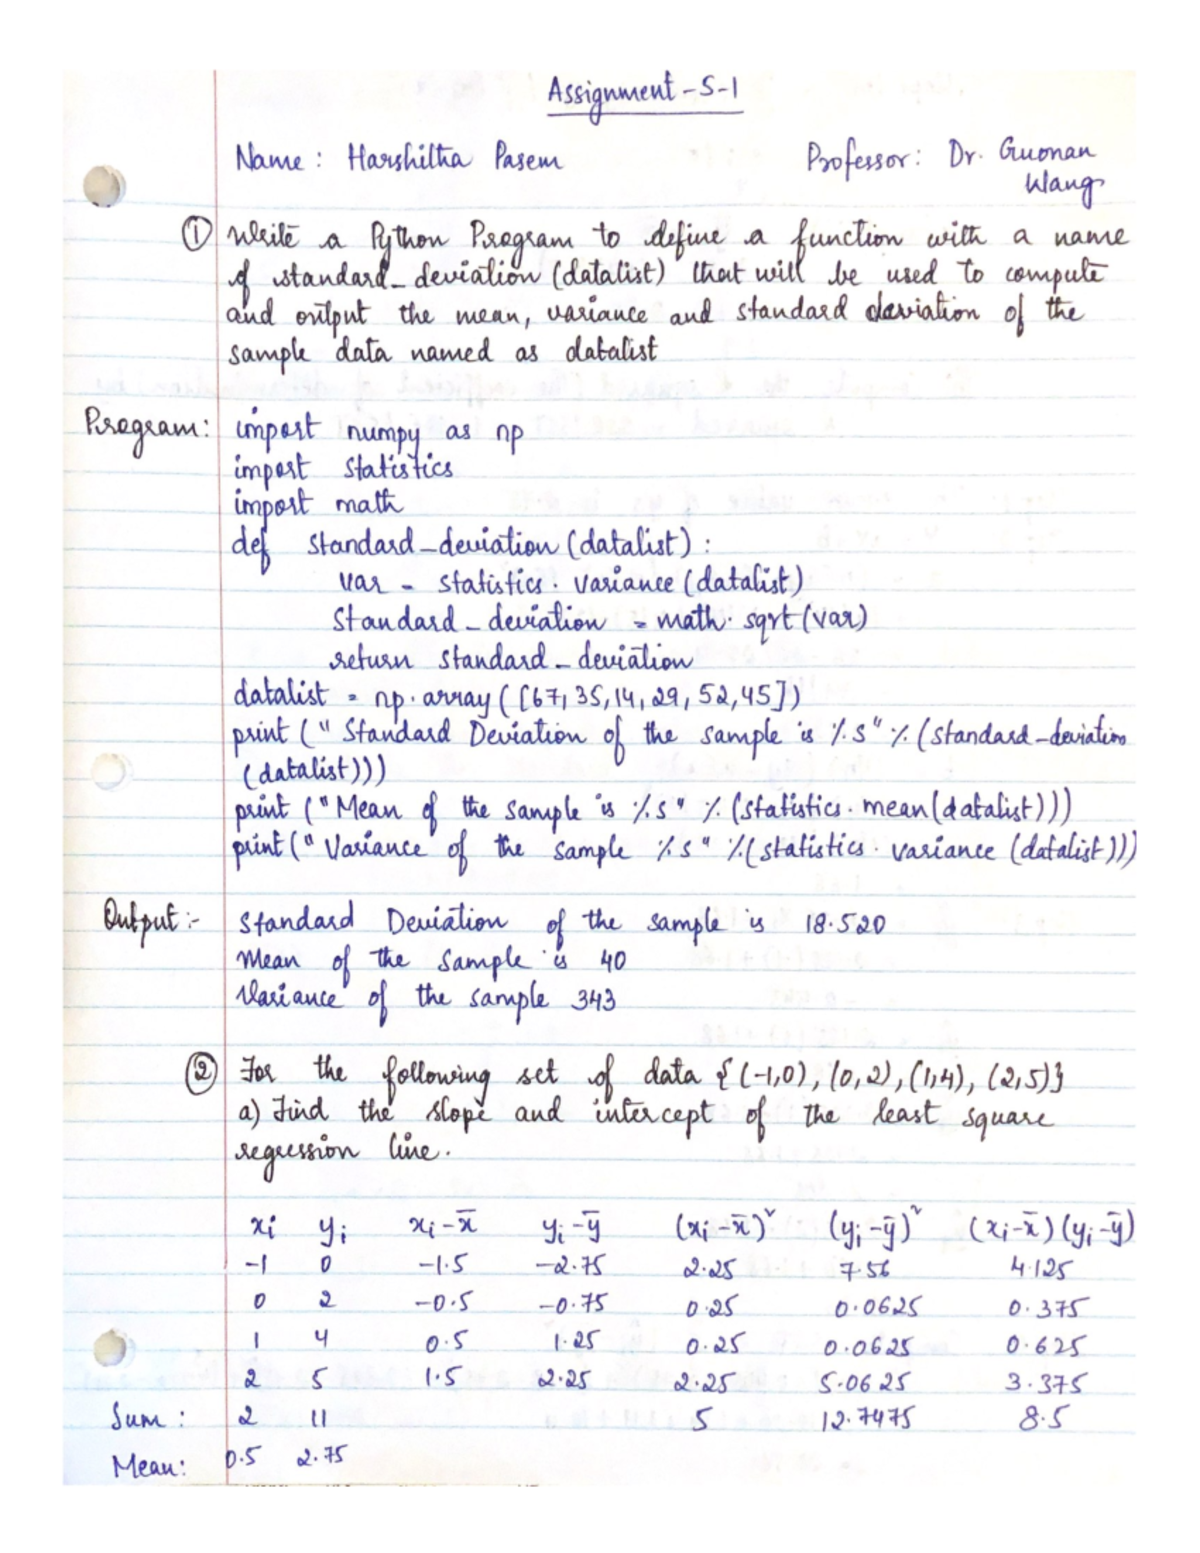 Assignment-S-1
Name : Harshitha Pasem Professor: Dr. Guonan Wang
① Write a Python Program to define a function with a name
of standard_deviation (datalist) that will be used to compute
and output the mean, variance and standard deviation of the
sample data named as datalist
Program: import numpy as np
import statistics
import math
def standard_deviation (datalist) :
var = statistics. variance (datalist)
standard_deviation = math. sqrt (var)
return standard_deviation
datalist = np. array ( [67, 35, 14, 29, 52, 45] )
print (" Standard Deviation of the sample is %s" % (standard_deviation
(datalist)))
print ("Mean of the sample is %s" % (statistics. mean(datalist)))
print (" Variance of the sample %s" %(statistics. variance (datalist)))
Output :- Standard Deviation of the sample is 18.520
Mean of the sample is 40
Variance of the sample 343
② For the following set of data {(-1,0), (0,2), (1,4), (2,5)}
a) Find the slope and intercept of the least square
regression line.
xi yi xi-x̄ yi-ȳ (xi-x̄)² (yi-ȳ)² (xi-x̄)(yi-ȳ)
-1 0 -1.5 -2.75 2.25 7.56 4.125
0 2 -0.5 -0.75 0.25 0.0625 0.375
1 4 0.5 1.25 0.25 0.0625 0.625
2 5 1.5 2.25 2.25 5.0625 3.375
Sum : 2 11 5 12.7475 8.5
Mean: 0.5 2.75